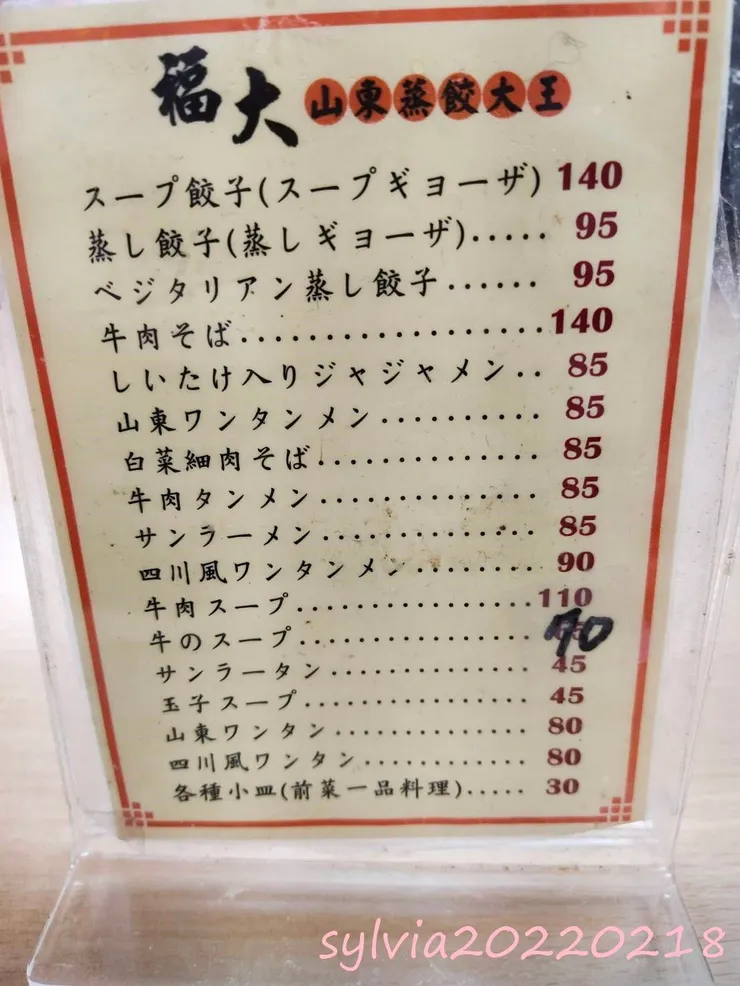 福大 山東蒸餃大王
スープ餃子(スープギョーザ) 140
蒸し餃子(蒸しギョーザ)..... 95
ベジタリアン蒸し餃子...... 95
牛肉そば...................140
しいたけ入りジャジャメン.. 85
山東ワンタンメン.......... 85
白菜細肉そば.............. 85
牛肉タンメン.............. 85
サンラーメン.............. 85
四川風ワンタンメン......... 90
牛肉スープ.................110
牛のスープ................ 70
サンラータン.............. 45
玉子スープ................ 45
山東ワンタン.............. 80
四川風ワンタン............ 80
各種小皿(前菜一品料理)..... 30
sylvia20220218